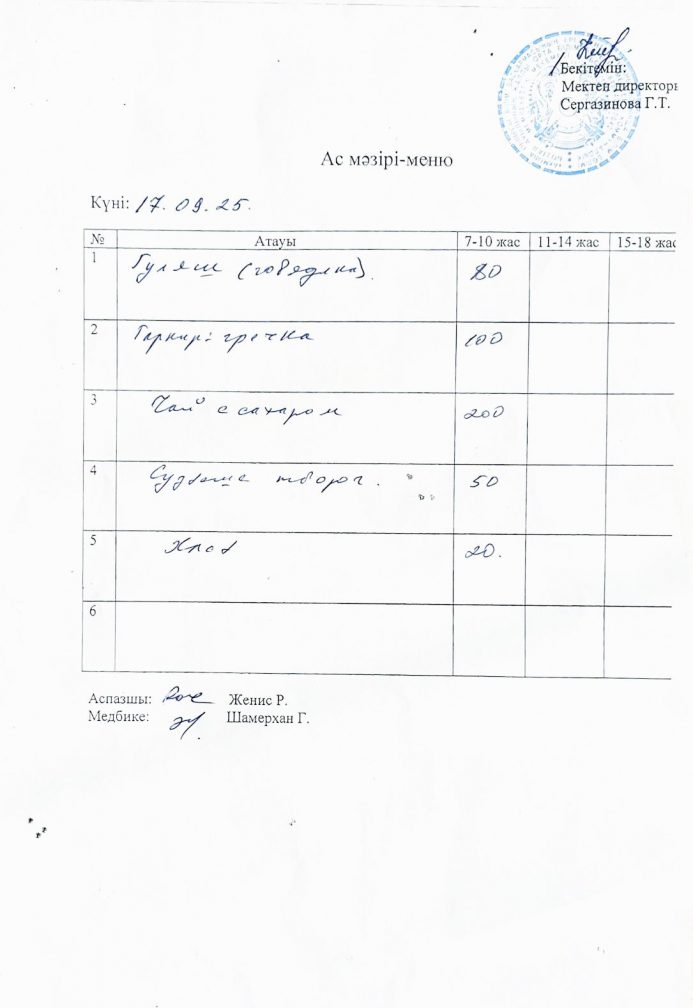 Бекітемін:
Мектеп директоры
Сергазинова Г.Т.
Ас мәзірі-меню
Күні: 17.09.25.
№ Атауы 7-10 жас 11-14 жас 15-18 жас
1 Гуляш (говядина). 80
2 Гарнир: гречка 100
3 Чай с сахаром 200
4 творог. 50
5 Хлеб 20.
6
Аспазшы: Женис Р.
Медбике: Шамерхан Г.